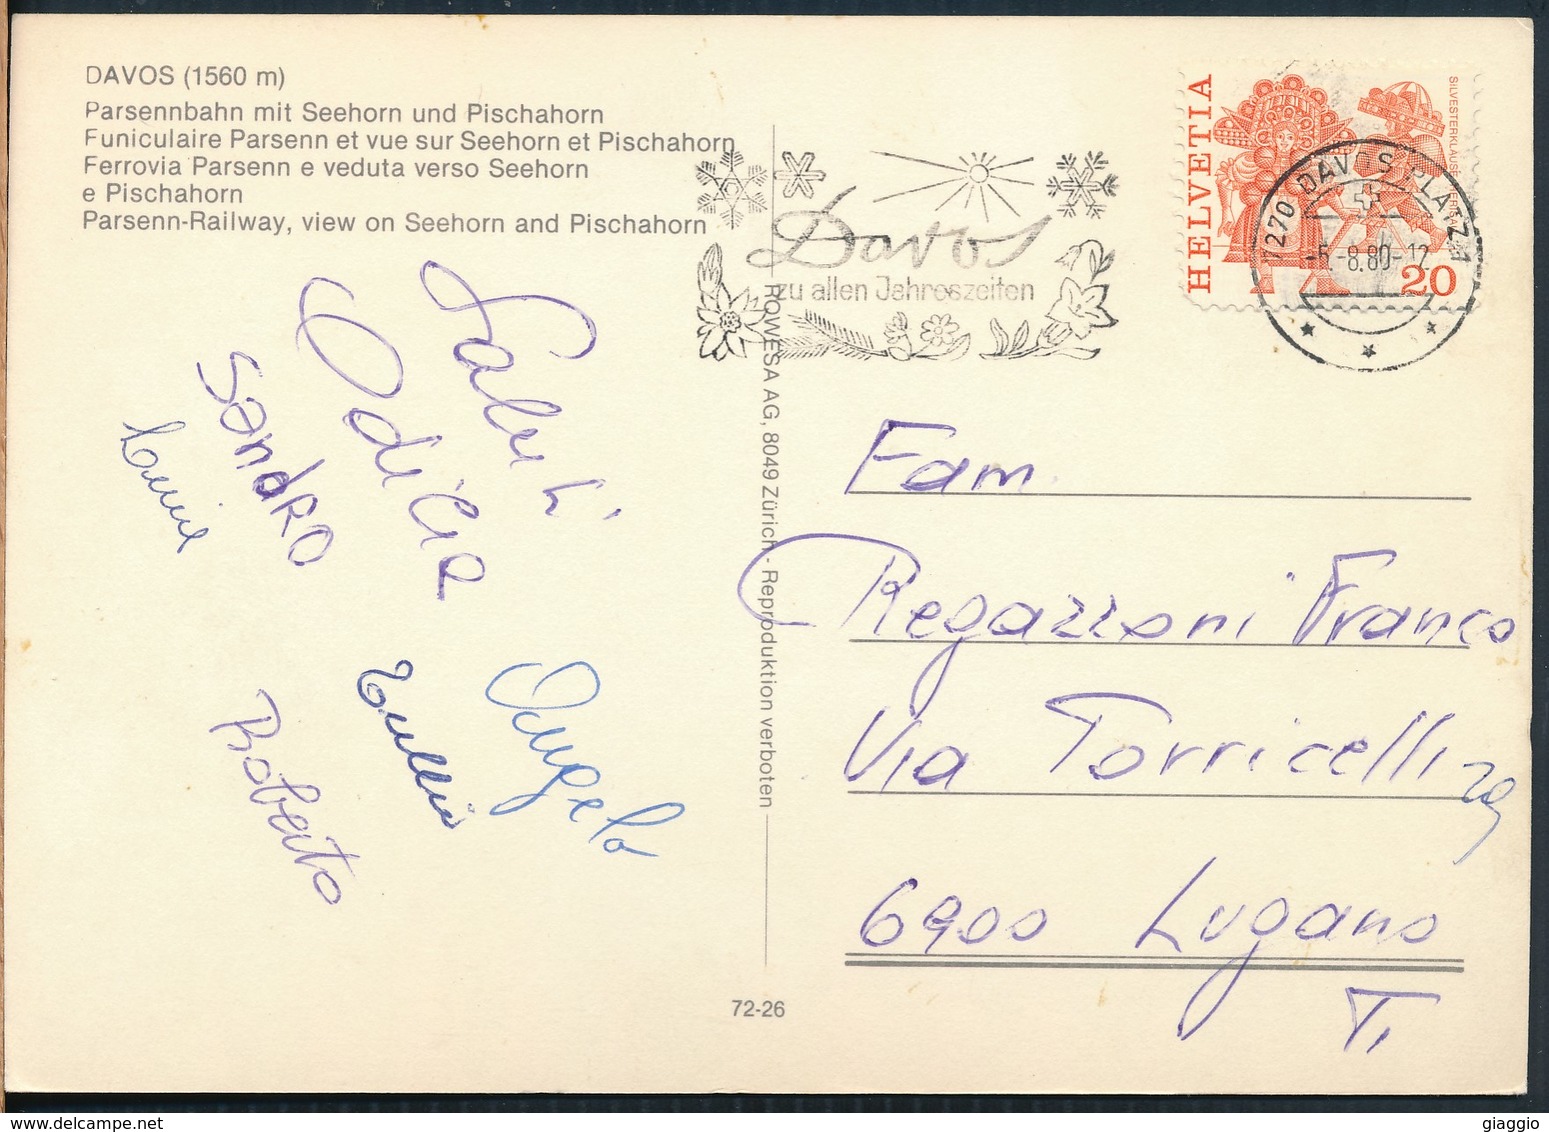 DAVOS (1560 m)
Parsennbahn mit Seehorn und Pischahorn
Funiculaire Parsenn et vue sur Seehorn et Pischahorn
Ferrovia Parsenn e veduta verso Seehorn
e Pischahorn
Parsenn-Railway, view on Seehorn and Pischahorn
Davos
zu allen Jahreszeiten
HELVETIA
20
7270 DAVOS PLATZ 1
-8.80-12
Saluti
Odilia
Sandro
Angelo
Roberto
ROWESA AG, 8049 Zürich - Reproduktion verboten
72-26
Fam.
Regazzoni Franco
Via Torricelli
6900 Lugano
Ti
giaggio